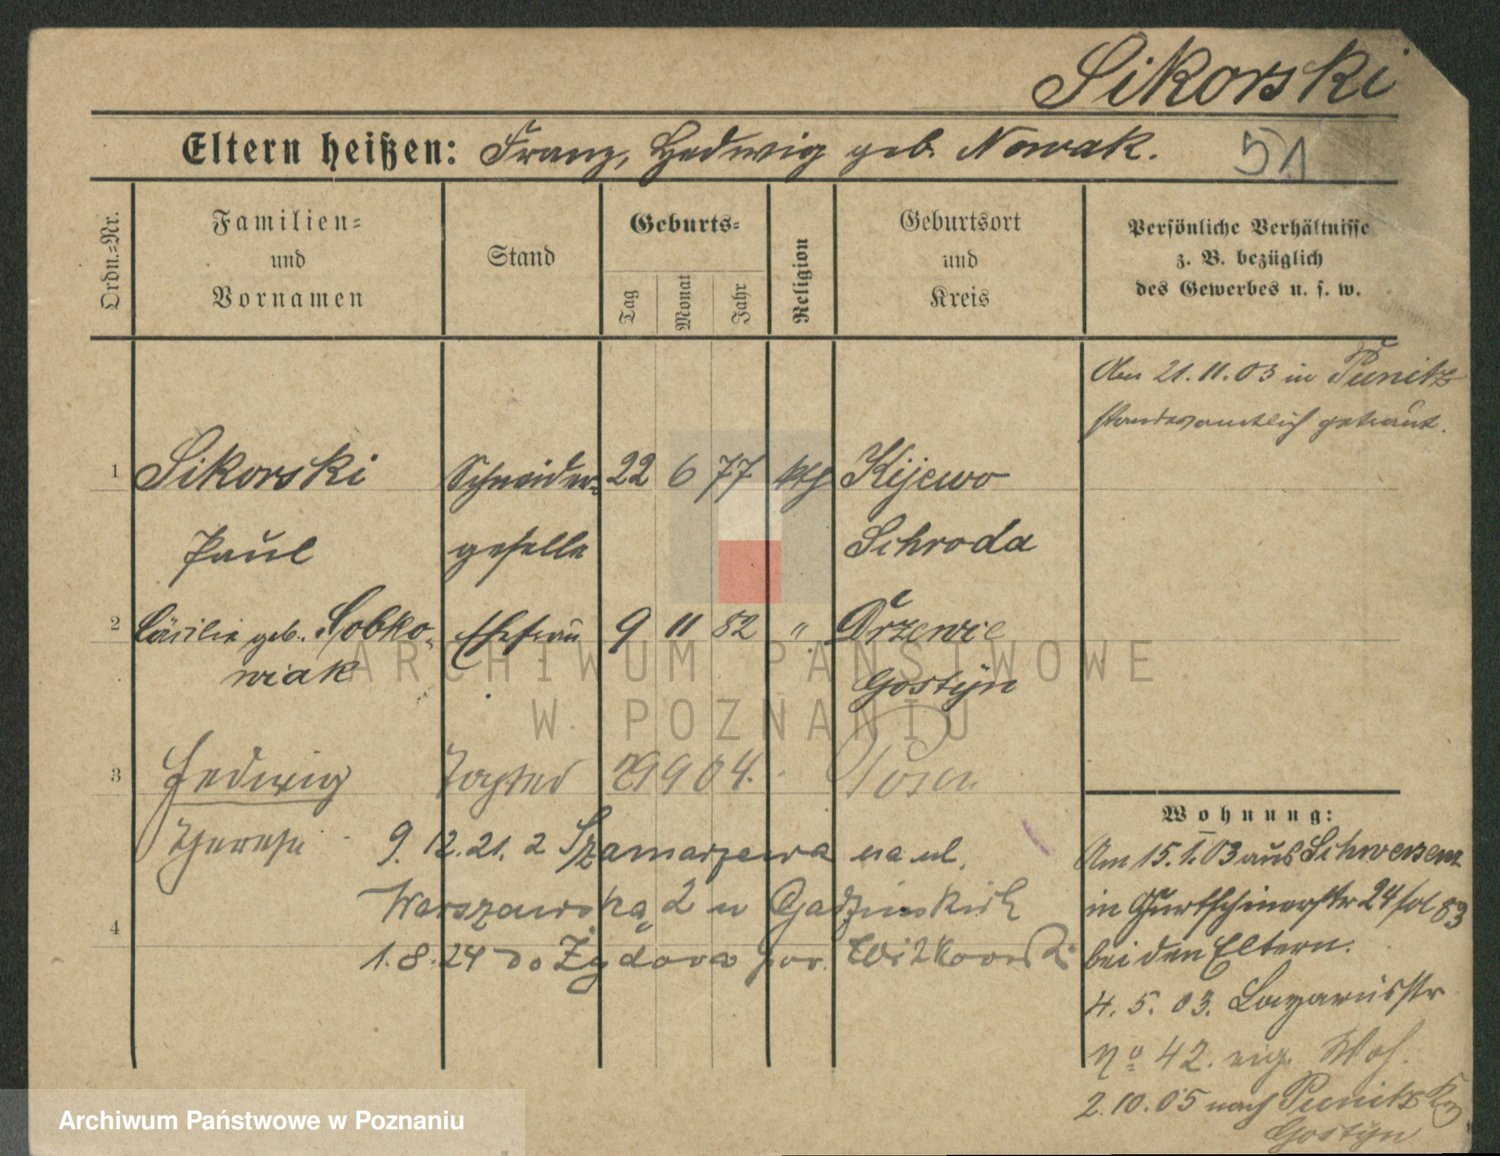 Sikorski
Eltern heißen: Franz, Hedwig geb. Nowak.
51
Ordn.-Nr.
Familien-
und
Vornamen
Stand
Geburts-
Tag
Monat
Jahr
Religion
Geburtsort
und
Kreis
Persönliche Verhältnisse
z. B. bezüglich
des Gewerbes u. s. w.
Am 21.11.03 in Punitz
standesamtlich getraut.
1 Sikorski Schneider- 22 6 77 ktf Kijewo
Paul geselle Schroda
2 Cäcilie geb. Sobko- Ehefrau 9 11 82 " Drzewce
wiak Gostyn
3 Hedwig Tochter 1904. Posen
Therese
9.12.21. z Szamarzewa na ul.
Warszawską 2 u
4
1.8.24 do Żydowa pow. Witkowski
Wohnung:
Am 15.1.03 aus Schwersenz
in Gurtschinerstr 24
bei den Eltern.
4.5.03. Lazarusstr
No 42. eig. Woh.
2.10.05 nach Punitz Kr
Gostyn
ARCHIWUM PAŃSTWOWE
W POZNANIU
Archiwum Państwowe w Poznaniu